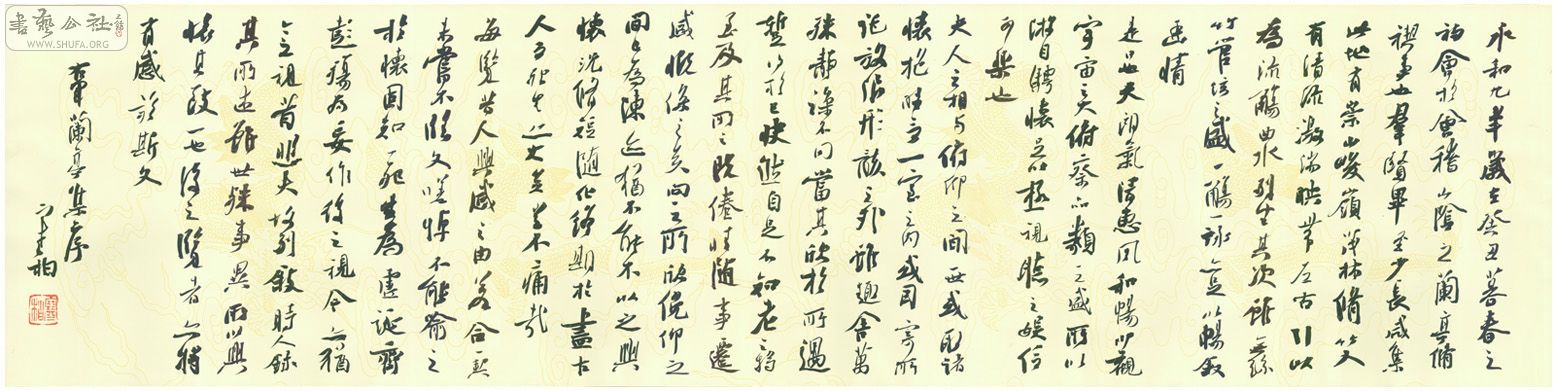 永和九年歲在癸丑暮春之
初會於會稽山陰之蘭亭脩
禊事也群賢畢至少長咸集
此地有崇山峻嶺茂林脩竹又
有清流激湍映帶左右引以
為流觴曲水列坐其次雖無絲
竹管弦之盛一觴一詠亦足以暢敘
幽情
是日也天朗氣清惠風和暢仰觀
宇宙之大俯察品類之盛所以
遊目騁懷足以極視聽之娛信
可樂也
夫人之相與俯仰之間一世或取諸
懷抱晤言一室之內或因寄所
託放浪形骸之外雖趣舍萬
殊靜躁不同當其欣於所遇
暫得於己快然自足不知老之將
至及其所之既倦情隨事遷
感慨係之矣向之所欣俛仰之
間已為陳迹猶不能不以之興
懷況脩短隨化終期於盡古
人云死生亦大矣豈不痛哉
每覽昔人興感之由若合一契
未嘗不臨文嗟悼不能喻之
於懷固知一死生為虛誕齊
彭殤為妄作後之視今亦猶
今之視昔悲夫故列敘時人錄
其所述雖世殊事異所以興
懷其致一也後之覽者亦將
有感於斯文
右軍蘭亭集序
書藝公社
WWW.SHUFA.ORG